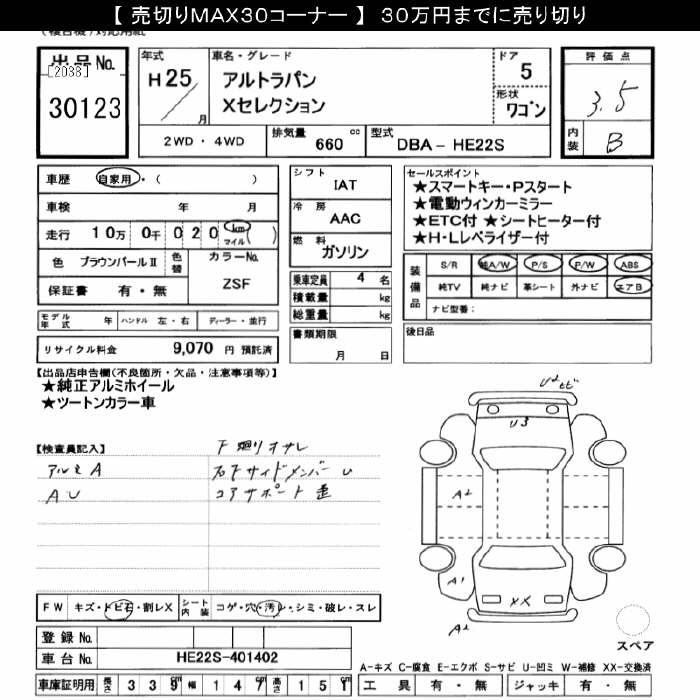 【 売切りMAX30コーナー 】 30万円までに売り切り
(複合機)対応用紙
出品No.
[2038]
30123
年式
H25
月
車名・グレード
アルトラパン
Xセレクション
ドア
5
形状
ワゴン
2WD・4WD
排気量 660 cc
型式 DBA－HE22S
評価点
3.5
内装 B
車歴 自家用・( )
車検 年 月
走行 10万 0千 020 km マイル ( )
色 ブラウンパールⅡ 色替 カラーNo. ZSF
保証書 有・無
モデル年式 年 ハンドル 左・右 ディーラー・並行
リサイクル料金 9,070 円 預託済
シフト
IAT
冷房
AAC
燃料
ガソリン
乗車定員 4 名
積載量 kg
総重量 kg
書類期限
月 日
セールスポイント
★スマートキー・Pスタート
★電動ウィンカーミラー
★ETC付★シートヒーター付
★H・Lレベライザー付
装備品 S/R 純A/W P/S P/W ABS
純TV 純ナビ 革シート 外ナビ エアB
ナビ型番：
後日品
【出品店申告欄(不良箇所・欠品・注意事項等)】
★純正アルミホイール
★ツートンカラー車
【検査員記入】
下廻りササレ
アルミA
右下サイドメンバーU
AU
コアサポート歪
U2 ヒビ
U3
A2
A1
XX
A2
スペア
FW キズ・トビ石・割レX シート内装 コゲ・穴・汚レ・シミ・破レ・スレ
登録No.
車台No. HE22S-401402
車庫証明用 長さ 339 幅 147 高さ 151
A-キズ C-腐食 E-エクボ S-サビ U-凹ミ W-補修 XX-交換済
工具 有・無 ジャッキ 有・無